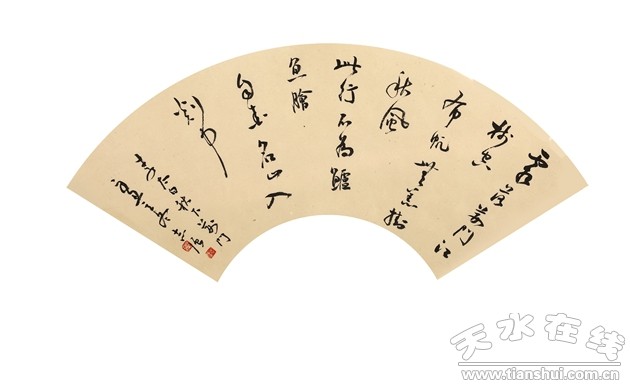 霜落荆門江
樹空
布帆無恙掛
秋風
此行不為鱸
魚膾
自愛名山入
剡中
李太白秋下荆門
天水在线
www.tianshui.com.cn